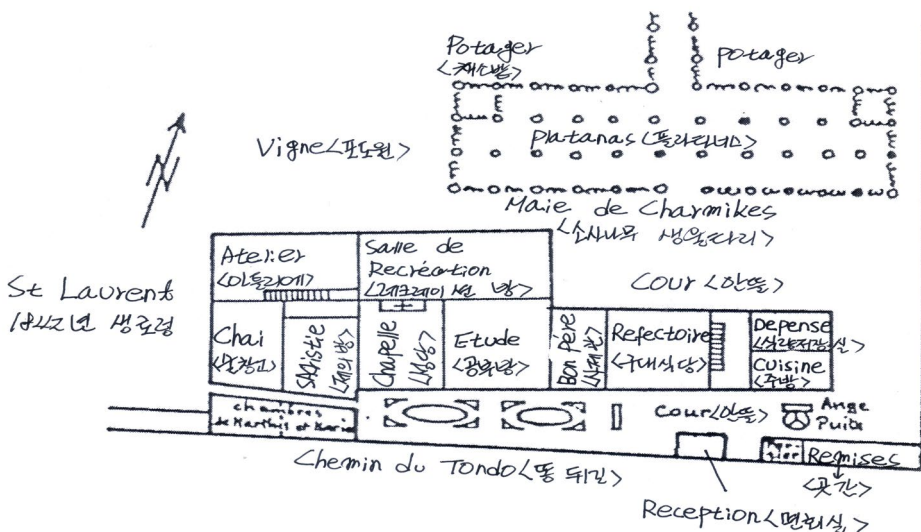 Potager
<채소밭>
potager
Vigne<포도원>
Platanas<플라타너스>
Maie de Charmikes
<소사나무 생울타리>
N
St Laurent
1842년 생로랑
Atelier
<아틀리에>
Salle de
Recréation
<레크레이션 방>
Cour <안뜰>
Chai
<술창고>
SAcristie
<제의방>
Chapelle
<성당>
Etude
<공부방>
Bon Père
Refectoire
<구내식당>
Depense
<식량저장실>
Cuisine
<주방>
chambres
de Marthis et Marie
Cour<안뜰>
Ange
Puits
Remises
<곳간>
Chemin du Tondo<똥 뒤길>
Reception<면회실>